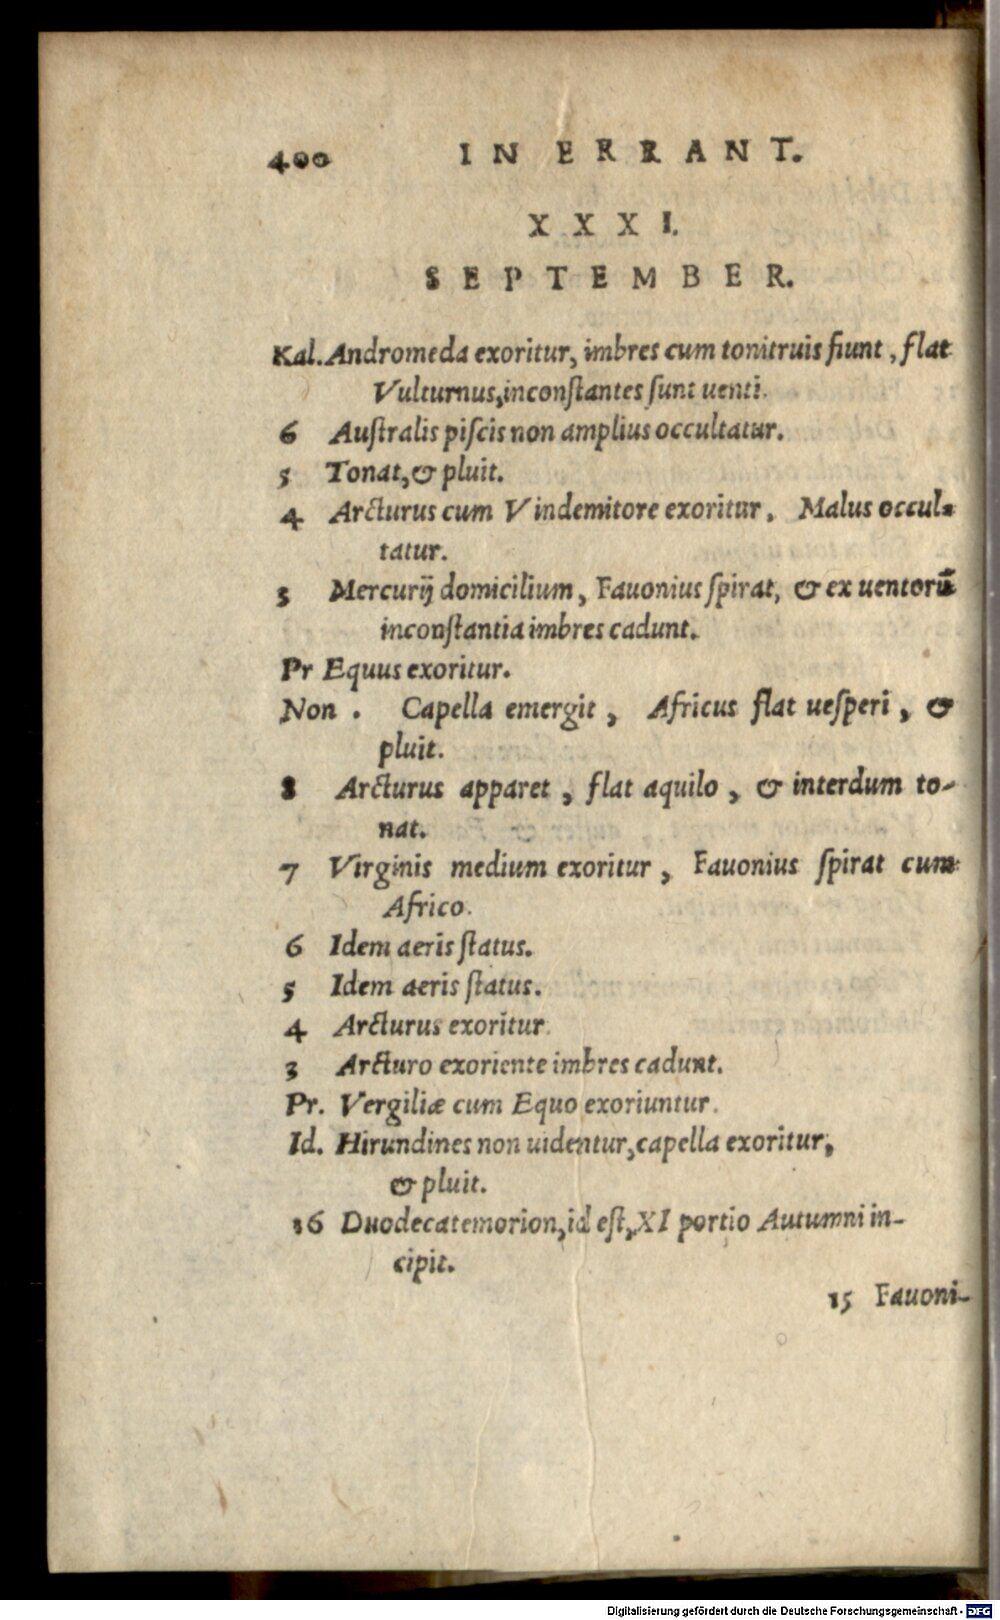 400 IN ERRANT.
XXXI.
SEPTEMBER.
Kal. Andromeda exoritur, imbres cum tonitruis fiunt, flat
Vulturnus, inconſtantes ſunt uenti.
6 Auſtralis piſcis non amplius occultatur.
5 Tonat, & pluit.
4 Arcturus cum Vindemitore exoritur, Malus occul-
tatur.
3 Mercurij domicilium, Fauonius ſpirat, & ex uentorū
inconſtantia imbres cadunt.
Pr Equus exoritur.
Non. Capella emergit, Africus flat ueſperi, &
pluit.
8 Arcturus apparet, flat aquilo, & interdum to-
nat.
7 Virginis medium exoritur, Fauonius ſpirat cum
Africo.
6 Idem aeris ſtatus.
5 Idem aeris ſtatus.
4 Arcturus exoritur
3 Arcturo exoriente imbres cadunt.
Pr. Vergiliæ cum Equo exoriuntur.
Id. Hirundines non uidentur, capella exoritur,
& pluit.
16 Duodecatemorion, id eſt, XI portio Autumni in-
cipit.
15 Fauoni-
Digitalisierung gefördert durch die Deutsche Forschungsgemeinschaft - DFG